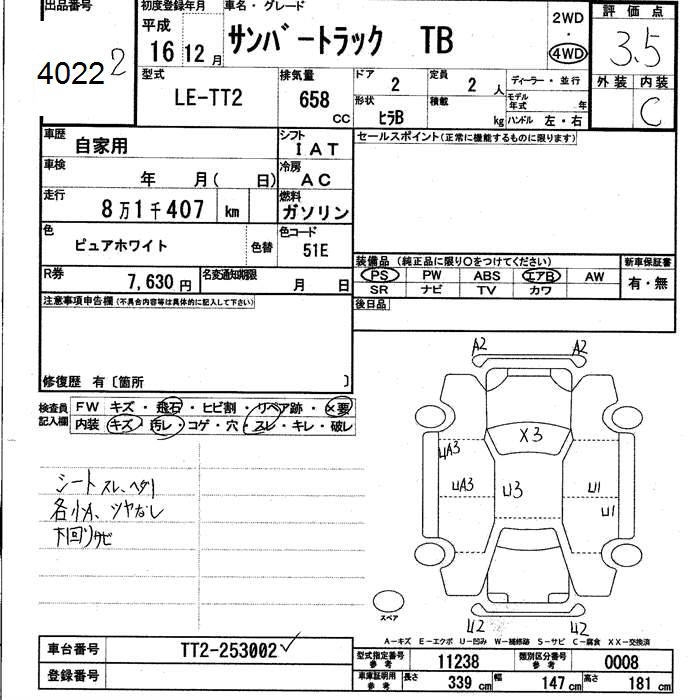 出品番号
初度登録年月
車名・グレード
評価点
平成
2WD
・
4WD
16
12
月
サンバートラック
TB
3.5
4022
2
型式
排気量
ドア
定員
ディーラー・並行
外装
内装
2
2
人
モデル
年式
年
LE-TT2
658
CC
形状
ヒラB
積載
kg
ハンドル
左・右
C
車歴
自家用
シフト
IAT
セールスポイント(正常に機能するものに限ります)
車検
年
月(
日)
冷房
AC
走行
8万1千407
km
燃料
ガソリン
色
ピュアホワイト
色替
色コード
51E
装備品
(純正品に限り○をつけてください)
新車保証書
PS
PW
ABS
エアB
AW
有・無
R券
7,630
円
名変通知期限
月
日
SR
ナビ
TV
カワ
注意事項申告欄(不具合内容等は具体的に記入して下さい)
後日品
修復歴
有〔箇所
〕
検査員
記入欄
FW
キズ・飛石・ヒビ割・リペア跡・×要
内装
キズ・汚レ・コゲ・穴・スレ・キレ・破レ
A2
A2
X3
UA3
UA3
U3
U1
U1
シートスレ、ヘタリ
各小A、ツヤなし
下回りサビ
スペア
U2
U2
A-キズ
E-エクボ
U-凹み
W-補修跡
S-サビ
C-腐食
XX-交換済
車台番号
TT2-253002
型式指定番号
参考
11238
類別区分番号
参考
0008
登録番号
車庫証明用
参考
長さ
339
cm
幅
147
cm
高さ
181
cm